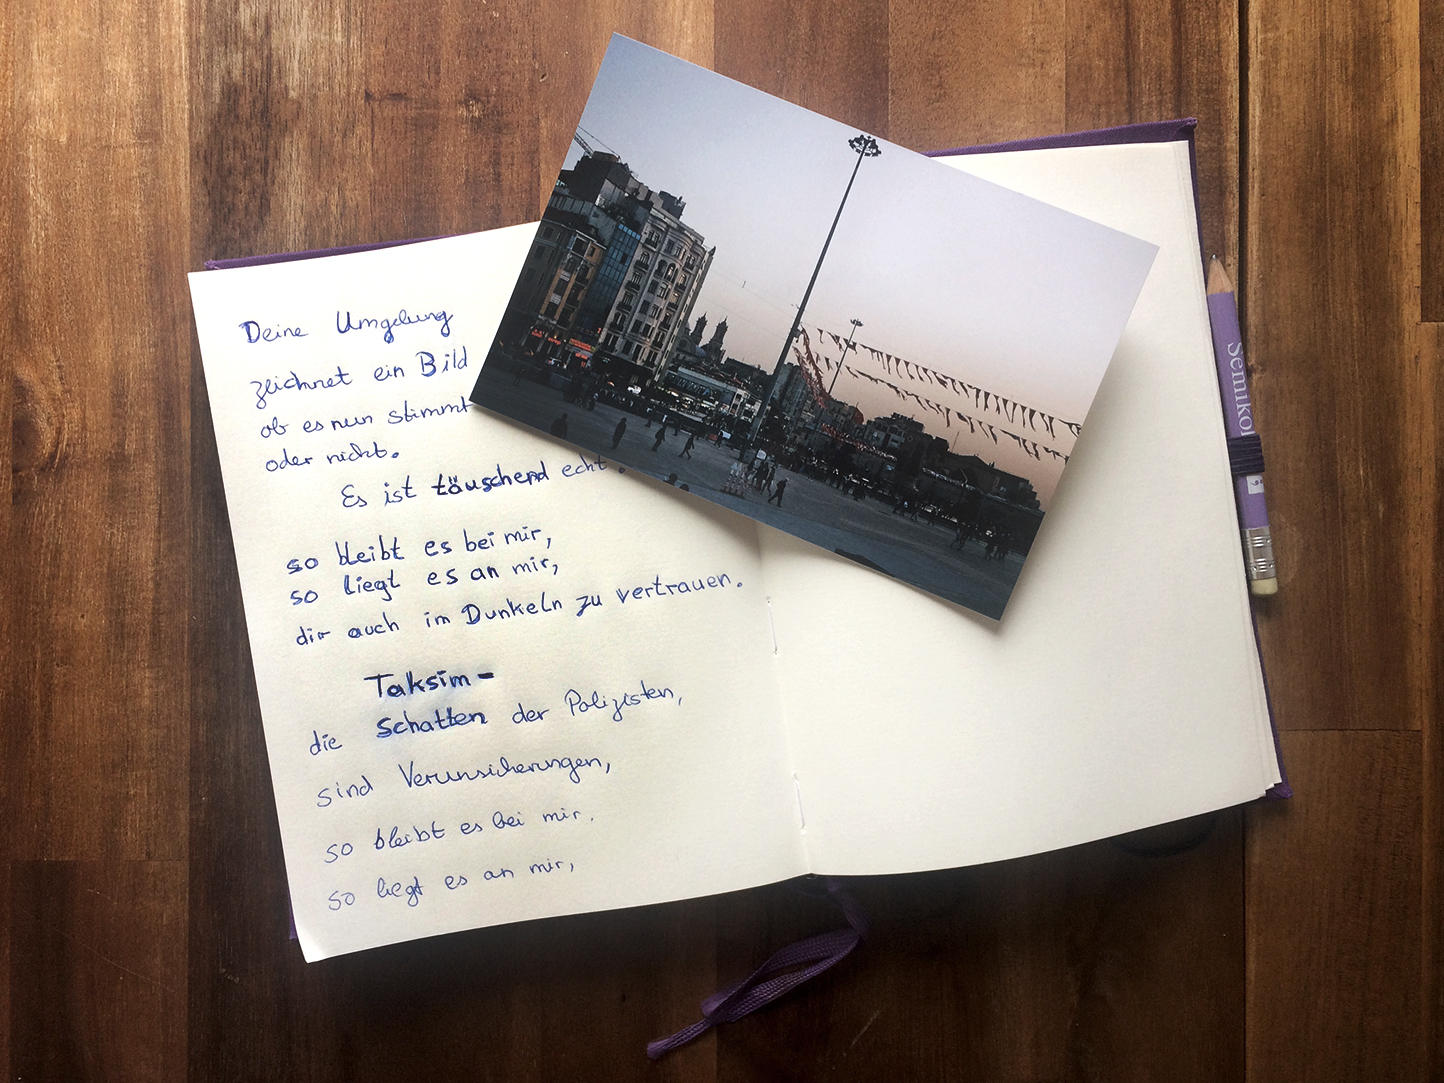 Deine Umgebung
zeichnet ein Bild
ob es nun stimmt
oder nicht.
Es ist täuschend echt.
so bleibt es bei mir,
so liegt es an mir,
dir auch im Dunkeln zu vertrauen.
Taksim-
die Schatten der Polizisten,
sind Verunsicherungen,
so bleibt es bei mir.
so liegt es an mir,
Semikol